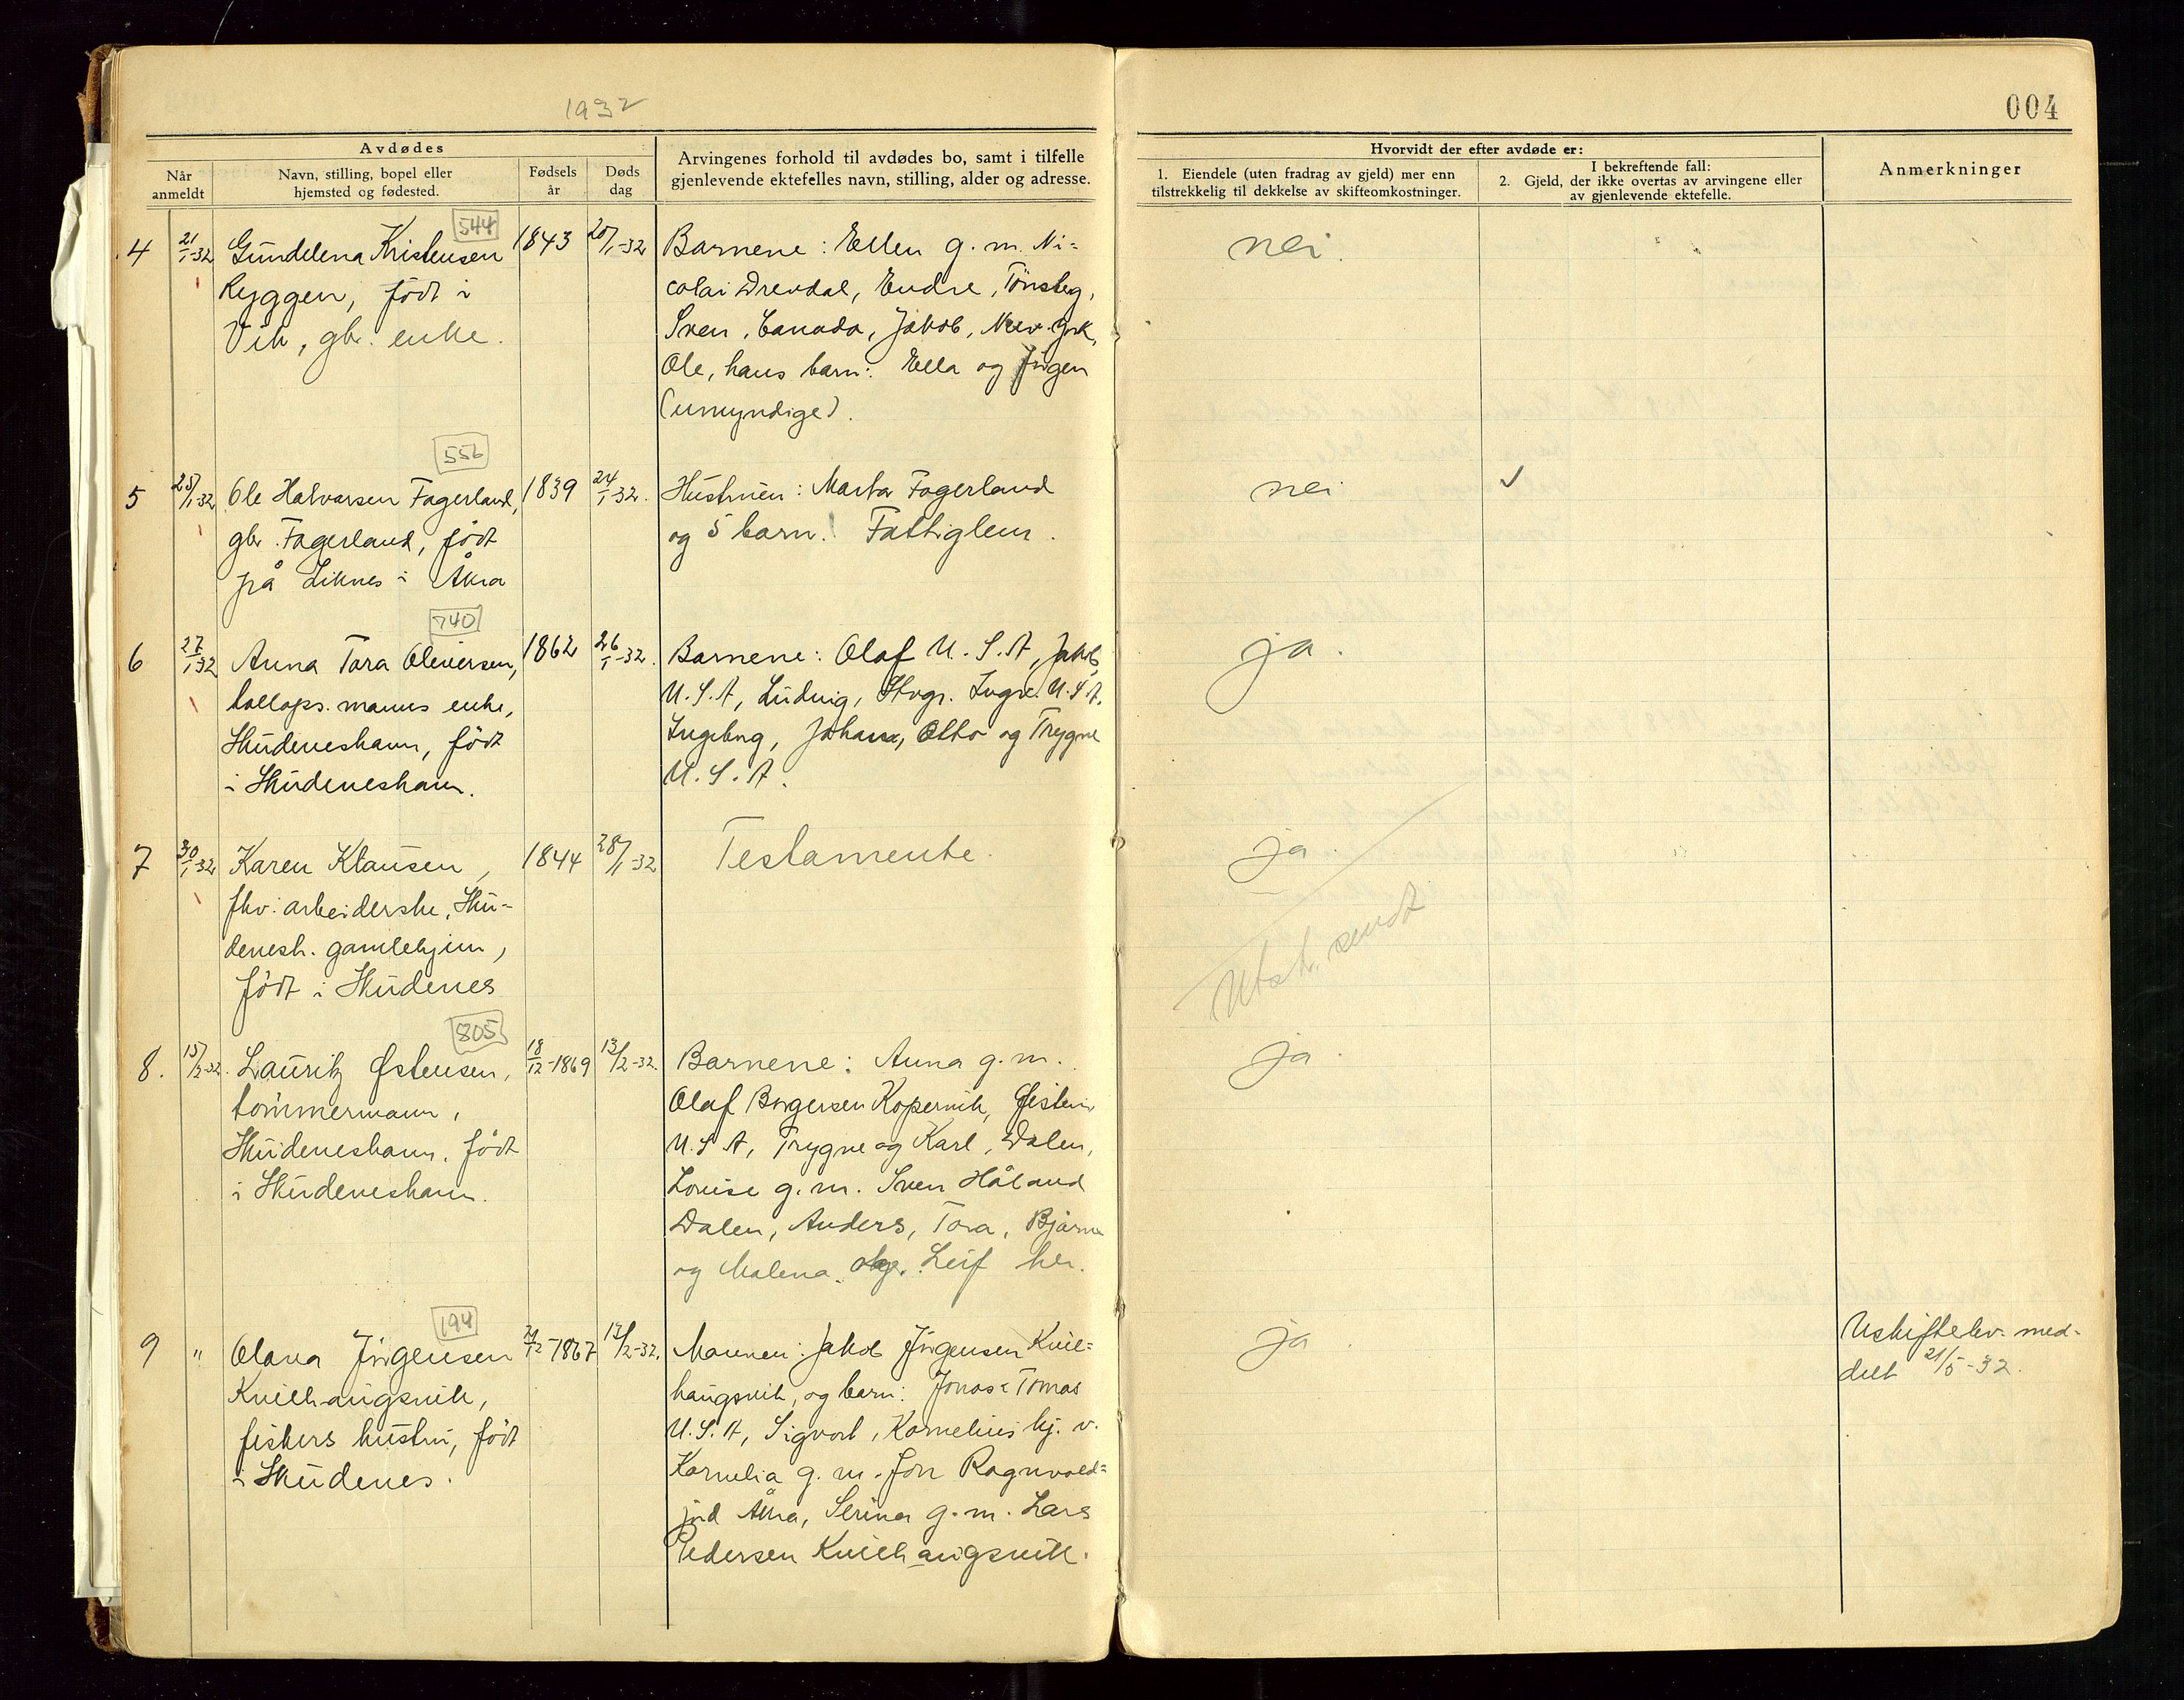 1932
004
Avdødes
Når anmeldt
Navn, stilling, bopel eller hjemsted og fødested.
Fødsels år
Døds dag
Arvingenes forhold til avdødes bo, samt i tilfelle gjenlevende ektefelles navn, stilling, alder og adresse.
Hvorvidt der efter avdøde er:
1. Eiendele (uten fradrag av gjeld) mer enn tilstrekkelig til dekkelse av skifteomkostninger.
I bekreftende fall:
2. Gjeld, der ikke overtas av arvingene eller av gjenlevende ektefelle.
Anmerkninger
544
4 21/1-32 Gundelena Kristensen 1843 20/1-32 Barnene: Ellen g. m. Ni- nei.
Ryggen, født i colai Drevdal, Endre, Tønsbg,
Vik, gbr. enke. Sven, Canada, Jakob, New-York,
Ole, hans barn: Ella og Jørgen
(umyndige).
556
5 25/1-32 Ole Halvorsen Fagerland, 1839 24/1-32. Hustruen: Marta Fagerland nei ✓
gbr. Fagerland, født og 5 barn. Fattiglem.
på Liknes i Åkra
740
6 27/1-32 Anna Tora Oliversen, 1862 26/1-32. Barnene: Olaf U.S.A, Jakob, ja.
tollops.manns enke, U.S.A, Ludvig, Stvgr. U.S.A.
Skudeneshavn, født Ingeborg, Johan, Otto og Trygve
i Skudeneshavn. U.S.A.
7 30/1-32 Karen Klausen, 1844 28/1-32 Testamente. ja.
fhv. arbeiderske, Sku-
denesh. gamlehjem,
født i Skudenes
Utskr. sendt
805
8. 15/2-32. Lauritz Østensen, 18/12-1869 13/2-32. Barnene: Anna g. m. ja.
tømmermann, Olaf Borgersen Kopervik, Øistein
Skudeneshavn, født U.S.A, Trygve og Karl, Dalen,
i Skudeneshavn. Louise g. m. Sven Håland
Dalen, Anders, Tora, Bjarne
og Malena. Leif her.
194
9 " Olava Jørgensen /12-1867 12/2-32. Mannen: Jakob Jørgensen Kvil- ja. Uskiftebev. med-
Kvilhaugsvik, haugsvik, og barn: Jonas & Tomas delt 21/5-32.
fiskers hustru, født U.S.A, Sigvart, Kornelius hj. v.
i Skudenes. Kornelia g. m. Jon Ragnvald-
jord Åkra, Serina g. m. Lars
Pedersen Kvilhaugsvik.